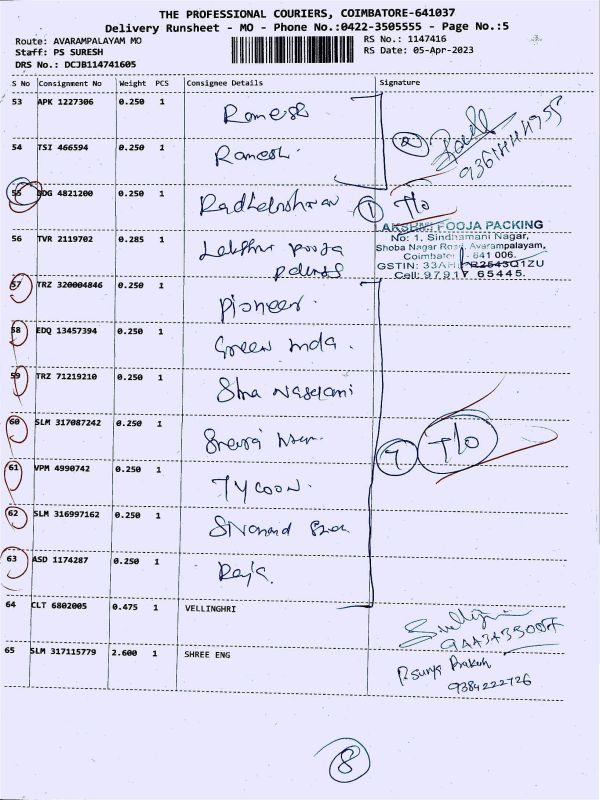 THE PROFESSIONAL COURIERS, COIMBATORE-641037
Delivery Runsheet - MO - Phone No.:0422-3505555 - Page No.:5
Route: AVARAMPALAYAM MO
RS No.: 1147416
Staff: PS SURESH
RS Date: 05-Apr-2023
DRS No.: DCJB114741605
S No Consignment No Weight PCS Consignee Details Signature
53 APK 1227306 0.250 1 Ramesh
54 TSI 466594 0.250 1 Ramesh.
2
55 DDG 4821200 0.250 1 1 T/O
LAKSHMI POOJA PACKING
No: 1, Sindhamani Nagar,
56 TVR 2119702 0.285 1 Lakshmi pooja
Shoba Nagar Road, Avarampalayam,
Coimbatore - 641 006.
GSTIN: 33AH
Cell: 9791 65445.
57 TRZ 320004846 0.250 1 Pioneer.
58 EDQ 13457394 0.250 1 Green India.
59 TRZ 71219210 0.250 1
60 SLM 317087242 0.250 1
7 T/O
61 VPM 4990742 0.250 1 Tycoon.
62 SLM 316997162 0.250 1
63 ASD 1174287 0.250 1 Raja
64 CLT 6802005 0.475 1 VELLINGHRI
65 SLM 317115779 2.600 1 SHREE ENG
P. Surya Prakash
9384222726
8